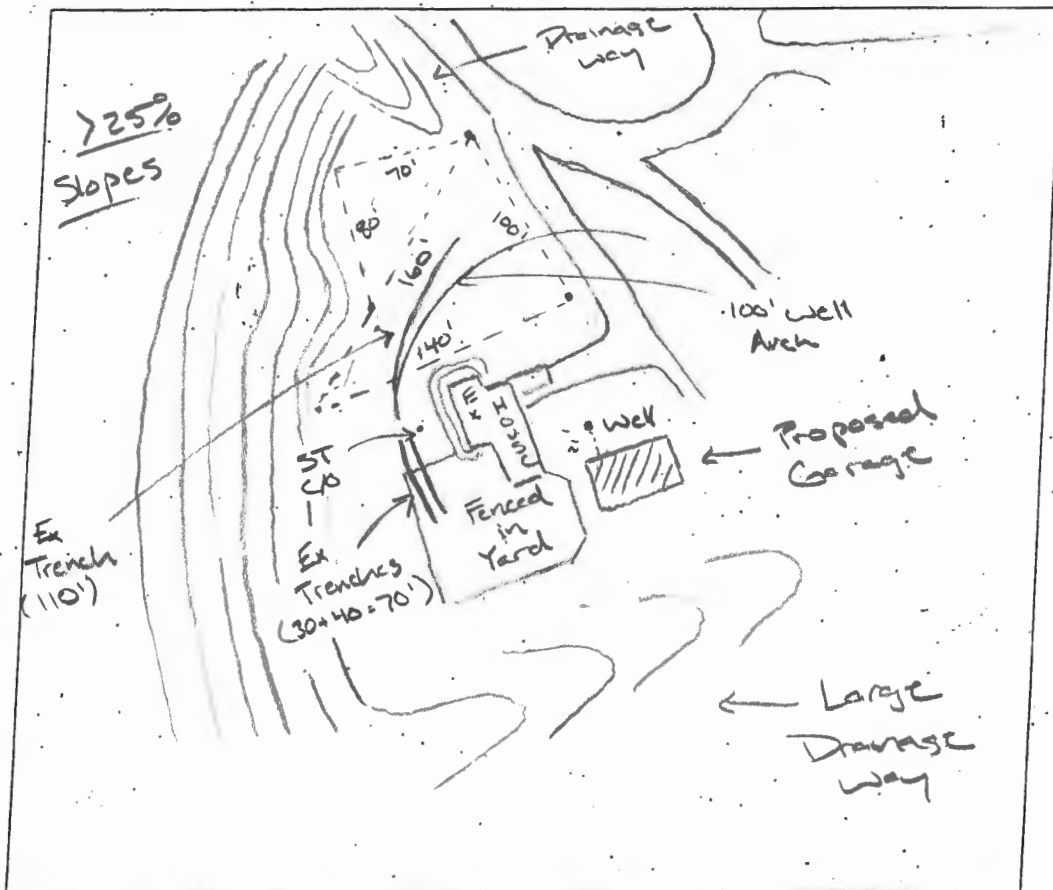 Drainage
way
>25%
Slopes
70'
180'
160'
100'
140'
100' well
Arch
Ex
House
Well
Proposed
Garage
ST
C/O
Fenced
in
Yard
Ex
Trench
(110')
Ex
Trenches
(30+40=70')
Large
Drainage
way